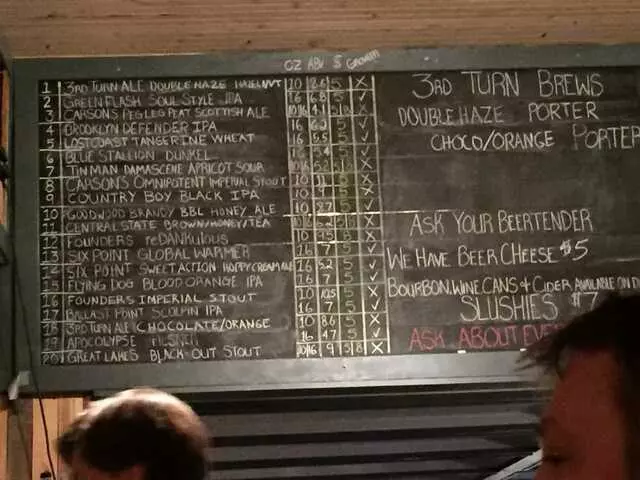 OZ ABV $ Growth
1 3RD TURN ALE DOUBLE HAZE HAZELNUT 10 8.6 5 X
2 GREEN FLASH SOUL STYLE IPA 16 6.5 5 ✓
3 CARSONS PEG LEG PEAT SCOTTISH ALE X
4 BROOKLYN DEFENDER IPA 16 5 ✓
5 LOST COAST TANGERINE WHEAT 16 5 ✓
6 BLUE STALLION DUNKEL 5 ✓
7 TIN MAN DAMASCENE APRICOT SOUR X
8 CARSONS OMNIPOTENT IMPERIAL STOUT 10 11 X
9 COUNTRY BOY BLACK IPA 5
10 GOODWOOD BRANDY BBL HONEY ALE 10 5
11 CENTRAL STATE BROWN/HONEY/TEA X
12 FOUNDERS reDANKulous 10 X
13 SIX POINT GLOBAL WARMER 16 7 5 ✓
14 SIX POINT SWEET ACTION HOPPY CREAM ALE 16 5.2 5 ✓
15 FLYING DOG BLOOD ORANGE IPA 16 7 5 ✓
16 FOUNDERS IMPERIAL STOUT 10 10.5 5 X
17 BALLAST POINT SCULPIN IPA 16 7 5 ✓
18 3RD TURN ALE CHOCOLATE/ORANGE 10 8.6 5 X
19 APOCALYPSE PILSNER 16 4.7 5 ✓
20 GREAT LAKES BLACK OUT STOUT 10/16 9 5/8 X
3RD TURN BREWS
DOUBLE HAZE PORTER
CHOCO/ORANGE PORTER
ASK YOUR BEERTENDER
WE HAVE BEER CHEESE $5
BOURBON, WINE CANS & CIDER AVAILABLE ON
SLUSHIES $7
ASK ABOUT